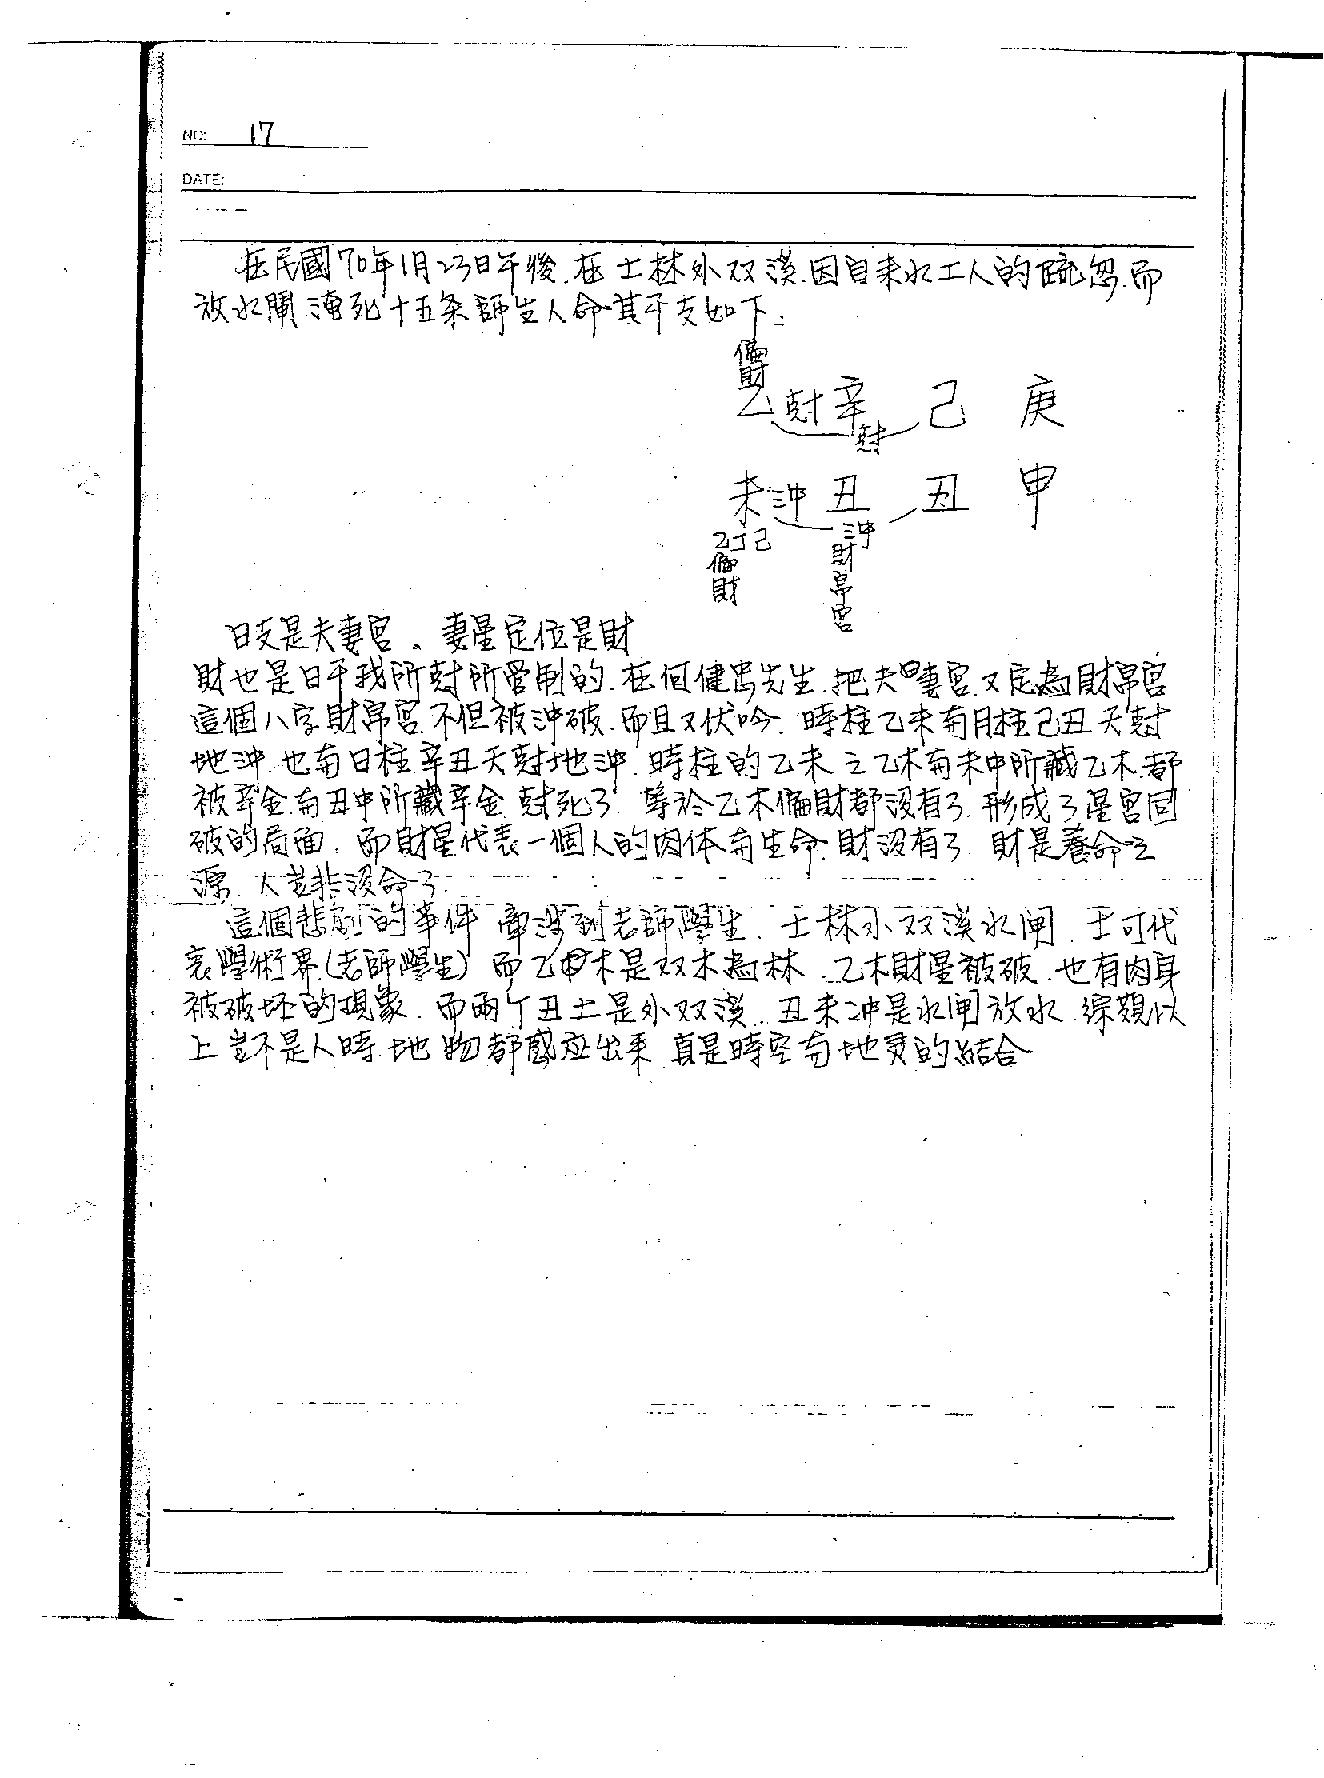 NO: 17
DATE:
在民國70年1月23日午後.在士林外双溪.因自来水工人的疏忽.而
放水閘淹死十五条師生人命.其干支如下:
偏財
乙 尅 辛 己 庚
尅
未 沖 丑 丑 申
沖
乙丁己
偏財
財帛宮
日支是夫妻宮、妻星定位是財
財也是日干我所尅所管制的.在何健忠先生.把夫妻宮又定為財帛宮
這個八字財帛宮.不但被沖破.而且又伏吟.時柱乙未與月柱己丑天尅
地沖.也與日柱辛丑天尅地沖.時柱的乙未之乙木與未中所藏乙木.都
被辛金與丑中所藏辛金.尅死了.等於乙木偏財都没有了.形成了星宮同
破的局面.而財星代表一個人的肉体與生命.財没有了.財是養命之
源.人豈非没命了
這個悲劇的事件 牽涉到老師學生.士林外双溪水閘.士可代
表學術界(老師學生)而乙木是双木為林.乙木財星被破.也有肉身
被破坏的現象.而兩个丑土是外双溪.丑未冲是水閘放水.綜觀以
上豈不是人時.地物都感应出来.真是時空與地灵的結合